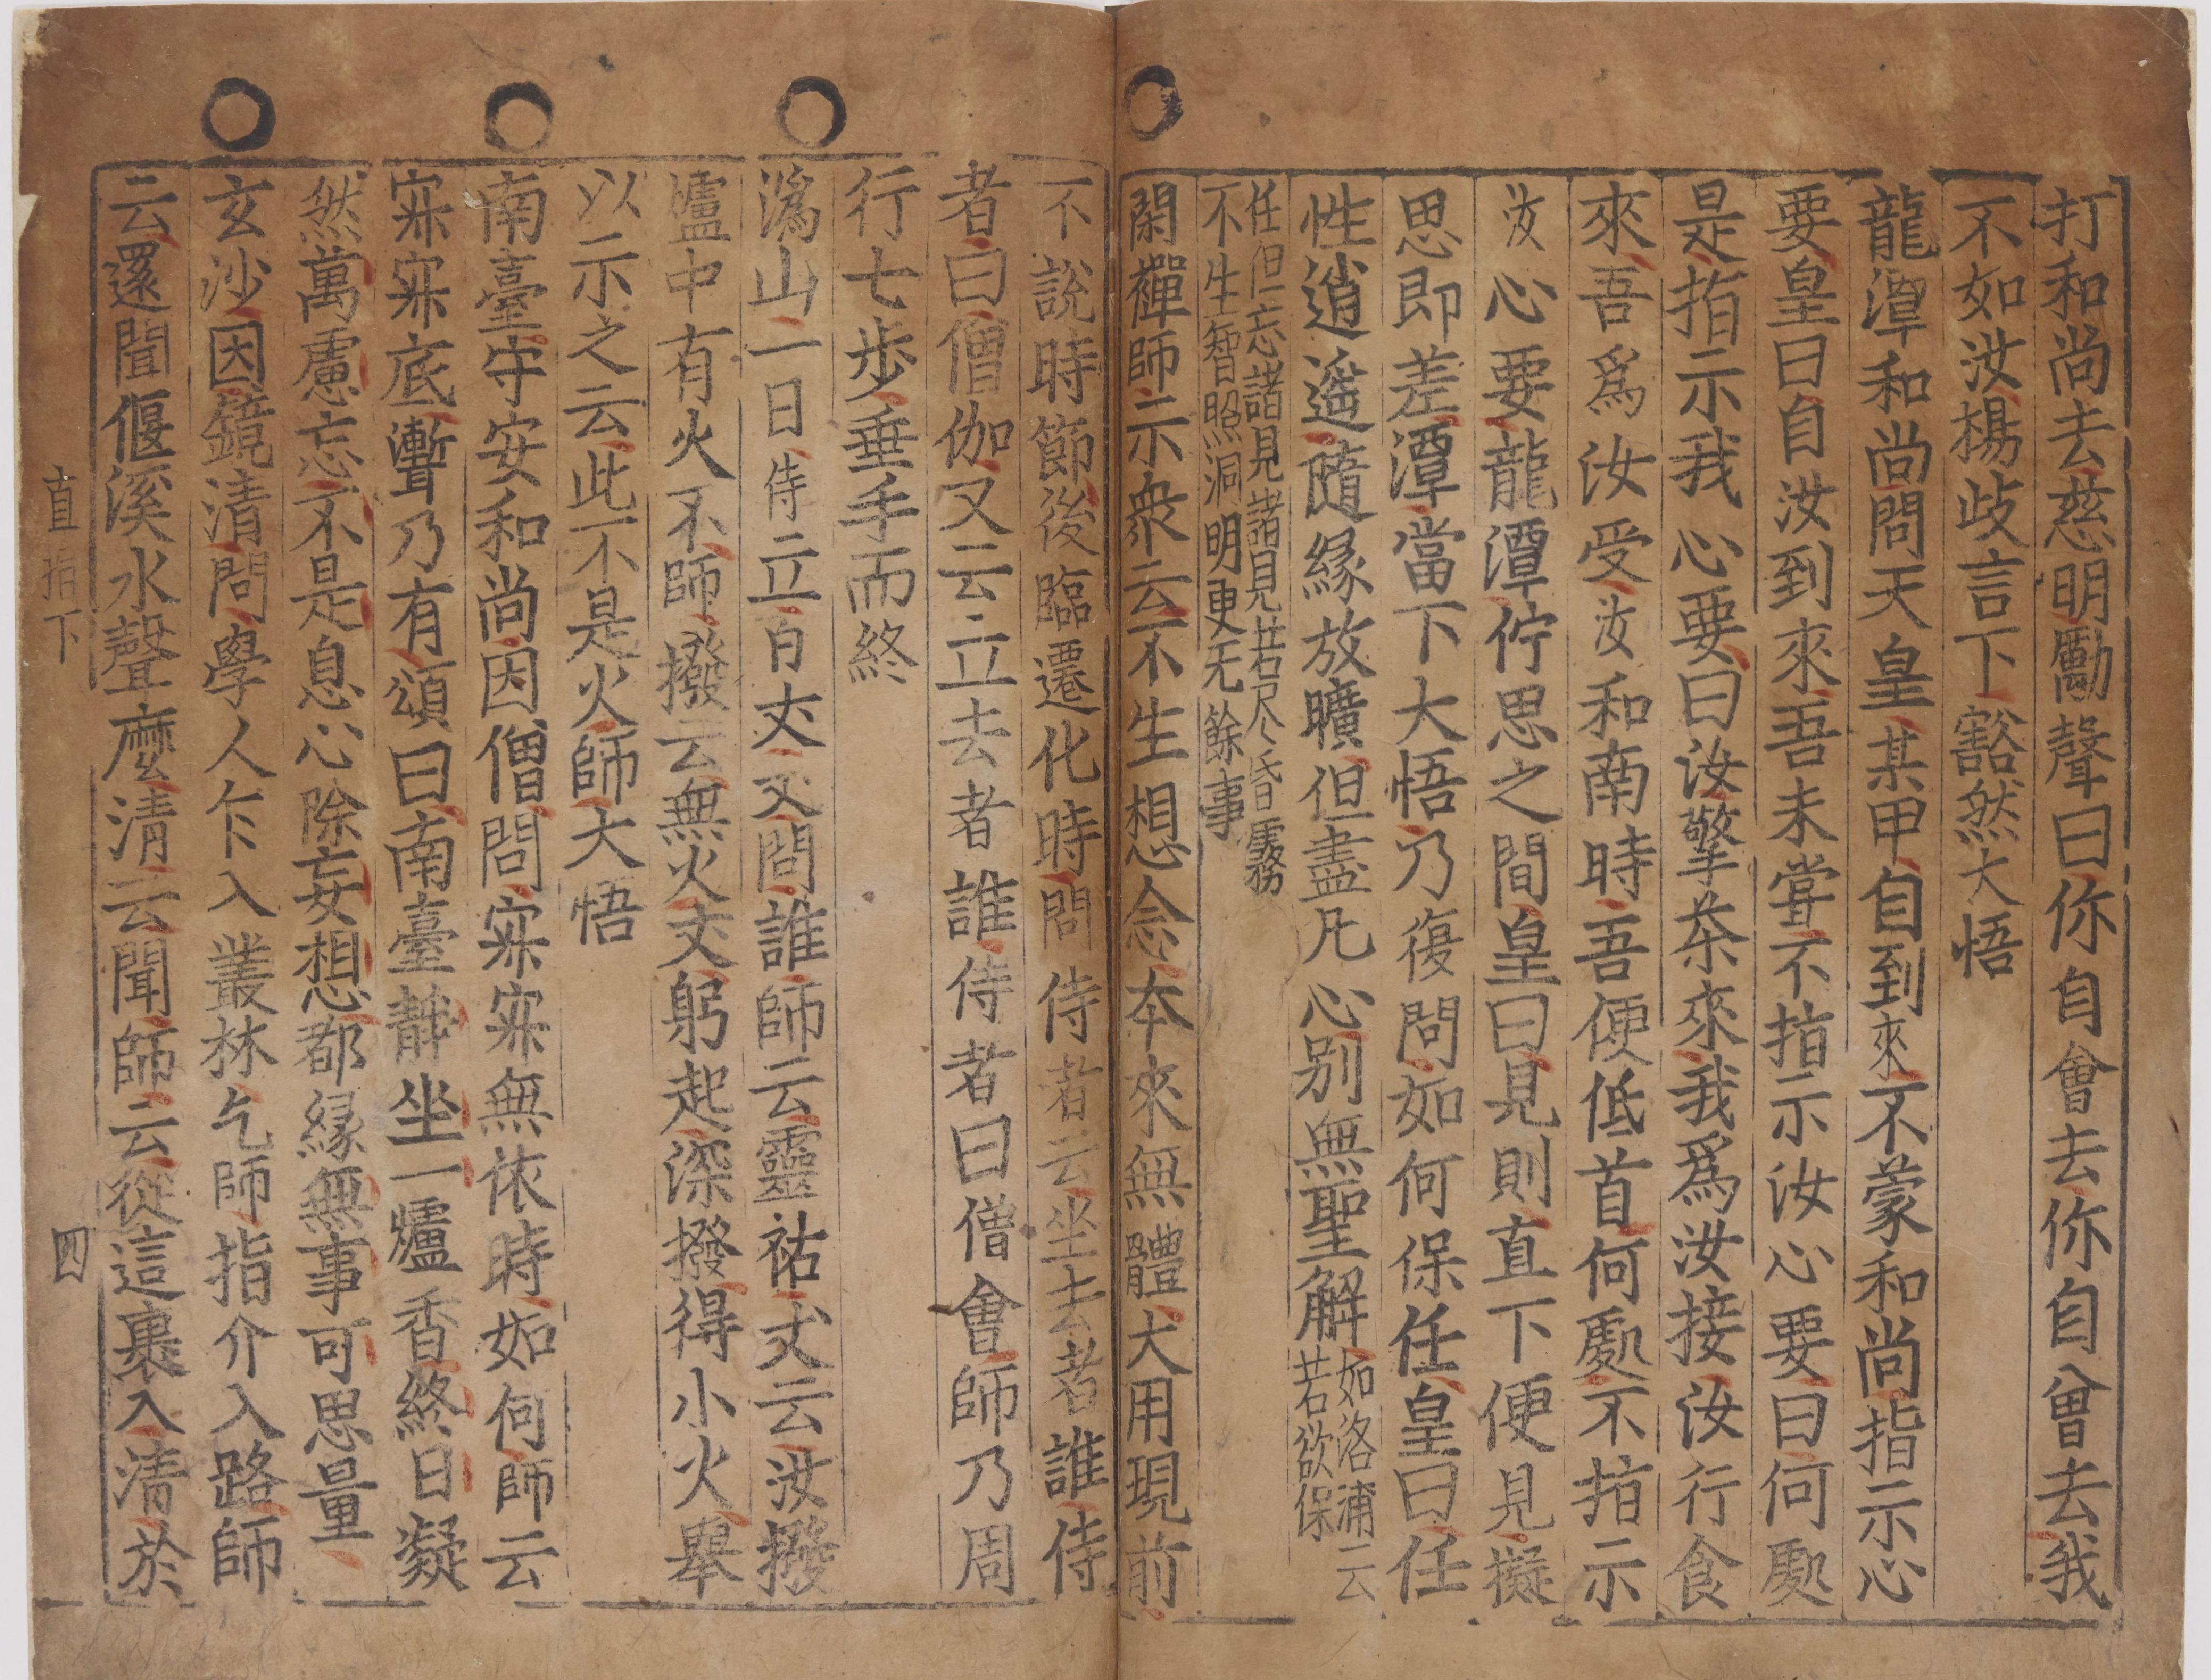 打和尚去慈明勵聲曰你自會去你自會去我
不如汝楊歧言下豁然大悟
龍潭和尚問天皇某甲自到來不蒙和尚指示心
要皇曰自汝到來吾未甞不指示汝心要曰何處
是指示我心要曰汝擎茶來我爲汝接汝行食
來吾爲汝受汝和南時吾便低首何處不指示
汝心要龍潭佇思之間皇曰見則直下便見擬
思即差潭當下大悟乃復問如何保任皇曰任
性逍遥隨緣放曠但盡凡心別無聖解如洛浦云
若欲保
任但忘諸見諸見若尽昏霧
不生智照洞明更无餘事
閑禪師示衆云不生想念本來無體大用現前
不說時節後臨遷化時問侍者云坐去者誰侍
者曰僧伽又云立去者誰侍者曰僧會師乃周
行七步垂手而終
潙山一日侍立百丈丈問誰師云靈祐丈云汝撥
爐中有火不師撥云無火丈躬起深撥得小火舉
以示之云此不是火師大悟
南臺守安和尚因僧問寂寂無依時如何師云
寂寂底聻乃有頌曰南臺靜坐一爐香終日凝
然萬慮忘不是息心除妄想都緣無事可思量
玄沙因鏡清問學人乍入叢林乞師指介入路師
云還聞偃溪水聲麼清云聞師云從這裏入清於
直指下
四